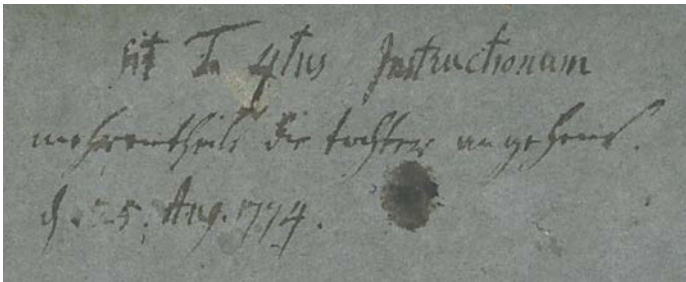 sit In 4tus Instructionum
mehrentheils die tochter angehend.
d. 25. Aug. 1774.